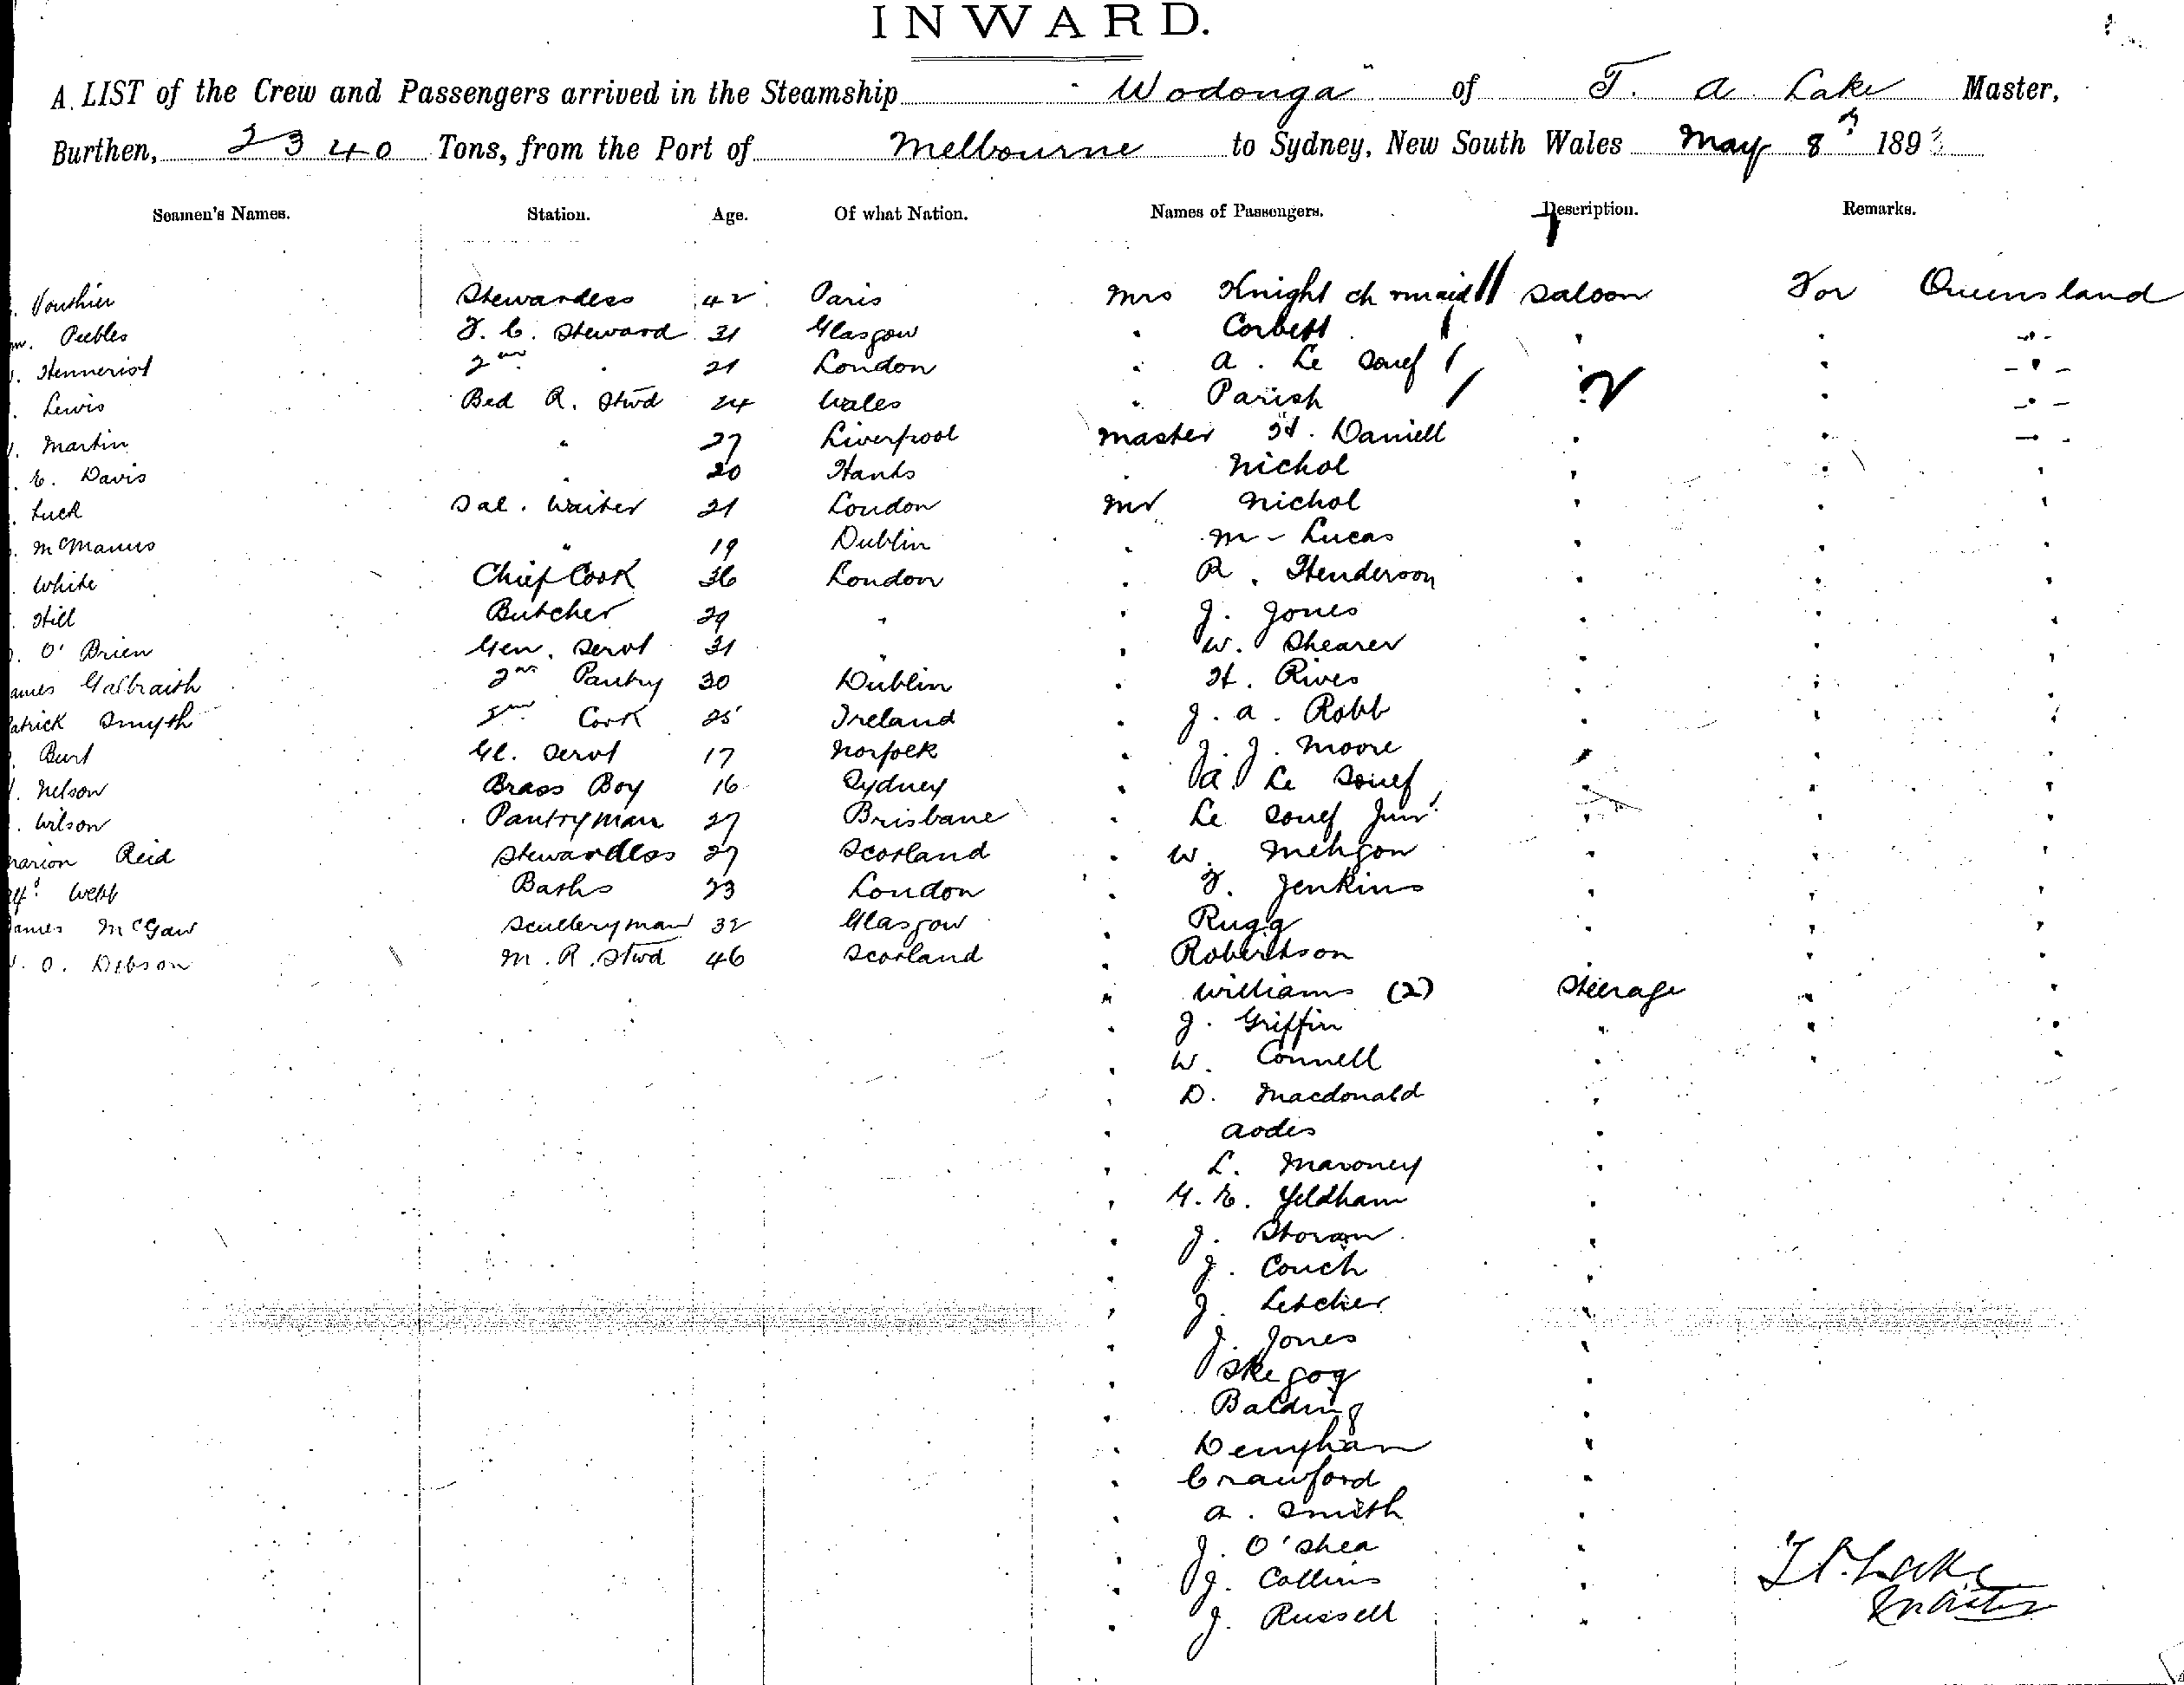 INWARD.
A LIST of the Crew and Passengers arrived in the Steamship "Wodonga" of T. A. Lake Master,
Burthen, 2340 Tons, from the Port of Melbourne to Sydney, New South Wales May 8th 189
Seamen's Names. Station. Age. Of what Nation. Names of Passengers. Description. Remarks.
Vouthier Stewardess 42 Paris Mrs Knight ch maid Saloon For Queensland
Peebles F. C. Steward 31 Glasgow " Corbett " " "
Hennerist 2nd " 21 London " A. Le Souef " " "
Lewis Bed R. Stwd 24 Wales " Parish 2 " "
Martin " 27 Liverpool Master H. Daniell " " "
E. Davis " 20 Hants " Nichol " " "
Luck Sal. Waiter 21 London Mr Nichol " " "
McManus " 19 Dublin " M - Lucas " "
White Chief Cook 36 London " R. Henderson " " "
Hill Butcher 29 " " J. Jones " " "
O'Brien Gen. Servt 31 " " W. Shearer " " "
ames Galbraith 2nd Pantry 30 Dublin " H. Rives " " "
atrick Smyth 2nd Cook 25 Ireland " J. A. Robb " " "
Burt Gl. Servt 17 Norfolk " J. J. Moore " " "
Nelson Brass Boy 16 Sydney " A. Le Souef " " "
Wilson Pantryman 27 Brisbane " Le Souef Junr " " "
arion Reid Stewardess 27 Scotland " W. " " "
Webb Baths 23 London " F. Jenkins " " "
ames McGaw Sculleryman 32 Glasgow " Rugg " " "
O. Dibson M. R. Stwd 46 Scotland " Robertson " " "
" Williams (2) Steerage " "
" J. Griffin " " "
" W. Connell " " "
" D. Macdonald "
" "
" L. Maroney "
" G. E. Yeldham "
" J. Storam "
" J. Couch "
" J. Letcher "
" J. Jones "
" Skegog "
" Balding "
" "
" Crawford "
" A. Smith "
" J. O'Shea "
" J. Collins "
" J. Russell "
T. A. Lake
Master